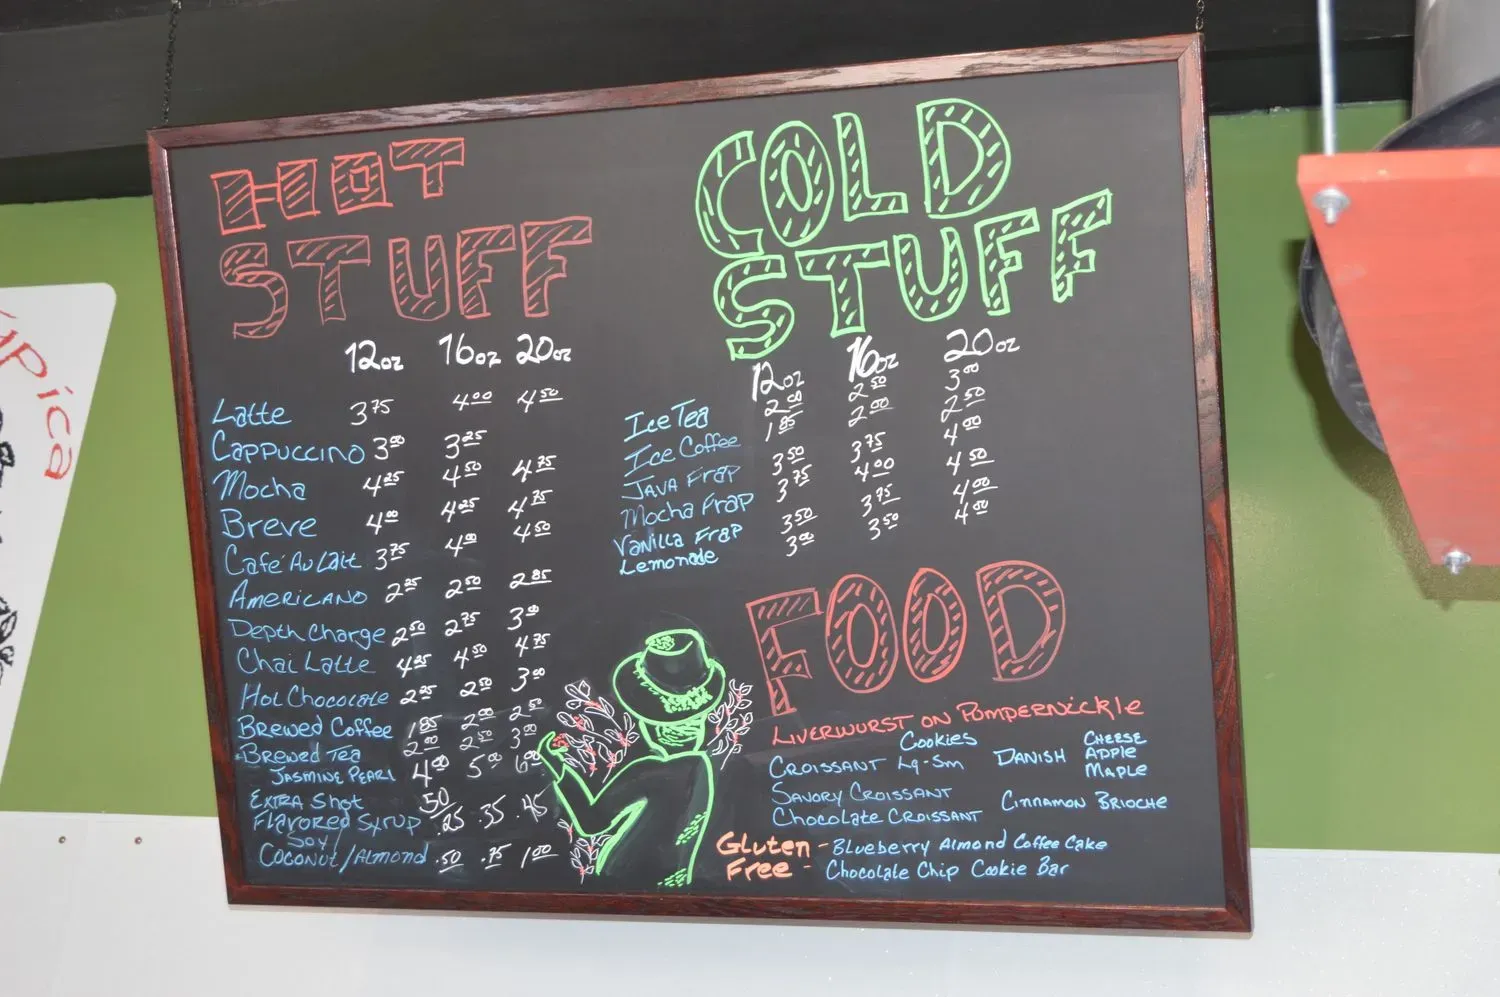 HOT
STUFF
12oz 16oz 20oz
Latte 3.75 4.00 4.50
Cappuccino 3.00 3.25
Mocha 4.25 4.50 4.75
Breve 4.00 4.25 4.75
Café Au Lait 3.75 4.00 4.50
Americano 2.25 2.50 2.85
Depth Charge 2.50 2.75 3.00
Chai Latte 4.25 4.50 4.75
Hot Chocolate 2.25 2.50 3.00
Brewed Coffee 1.85 2.00 2.50
Brewed Tea 2.00 2.50 3.00
Jasmine Pearl 4.00 5.00 6.00
Extra Shot .50
Flavored Syrup .25 .35 .45
Soy/
Coconut/Almond .50 .75 1.00
COLD
STUFF
12oz 16oz 20oz
Ice Tea 2.00 2.50 3.00
Ice Coffee 1.85 2.00 2.50
Java Frap 3.50 3.75 4.00
Mocha Frap 3.75 4.00 4.50
Vanilla Frap 3.50 3.75 4.00
Lemonade 3.00 3.50 4.00
FOOD
Liverwurst on Pompernickle
Cookies
Croissant Lg-Sm
Savory Croissant
Chocolate Croissant
Danish Cheese
Apple
Maple
Cinnamon Brioche
Gluten - Blueberry Almond Coffee Cake
Free - Chocolate Chip Cookie Bar
apica